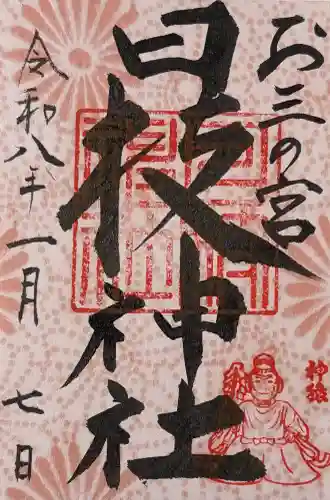 お三の宮
日枝神社
令和八年一月七日
神猿